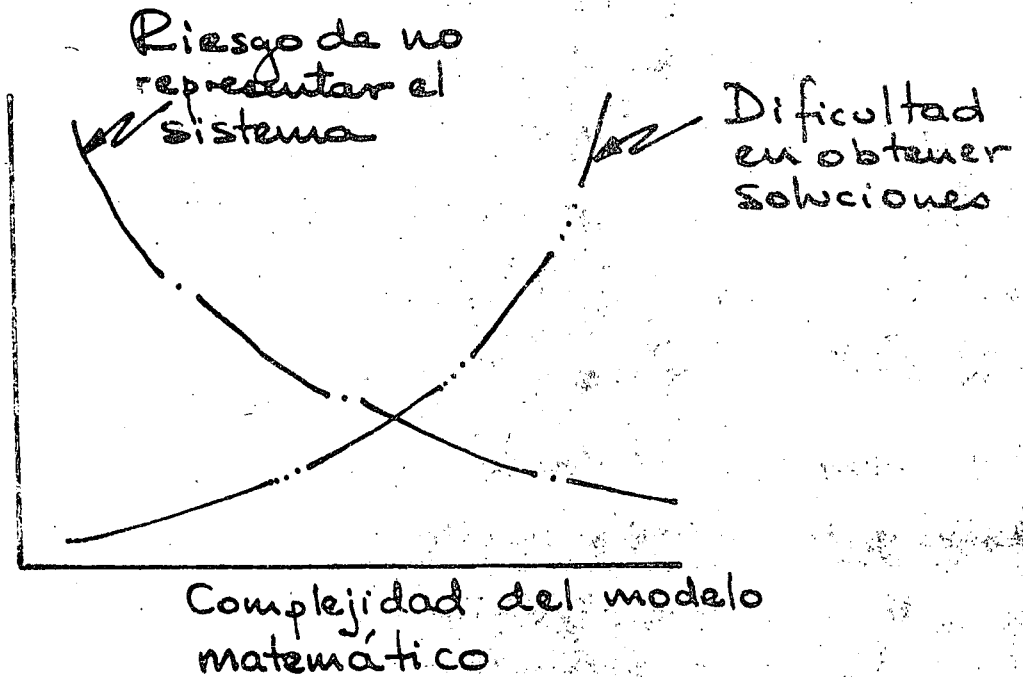 Riesgo de no
representar el
sistema
Dificultad
en obtener
soluciones
Complejidad del modelo
matemático